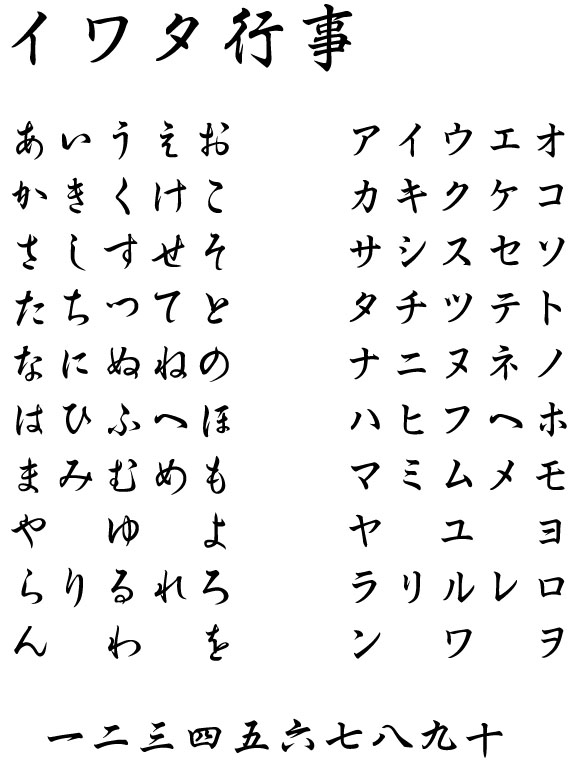 イワタ行事
あいうえお アイウエオ
かきくけこ カキクケコ
さしすせそ サシスセソ
たちつてと タチツテト
なにぬねの ナニヌネノ
はひふへほ ハヒフヘホ
まみむめも マミムメモ
や ゆ よ ヤ ユ ヨ
らりるれろ ラリルレロ
ん わ を ン ワ ヲ
一二三四五六七八九十